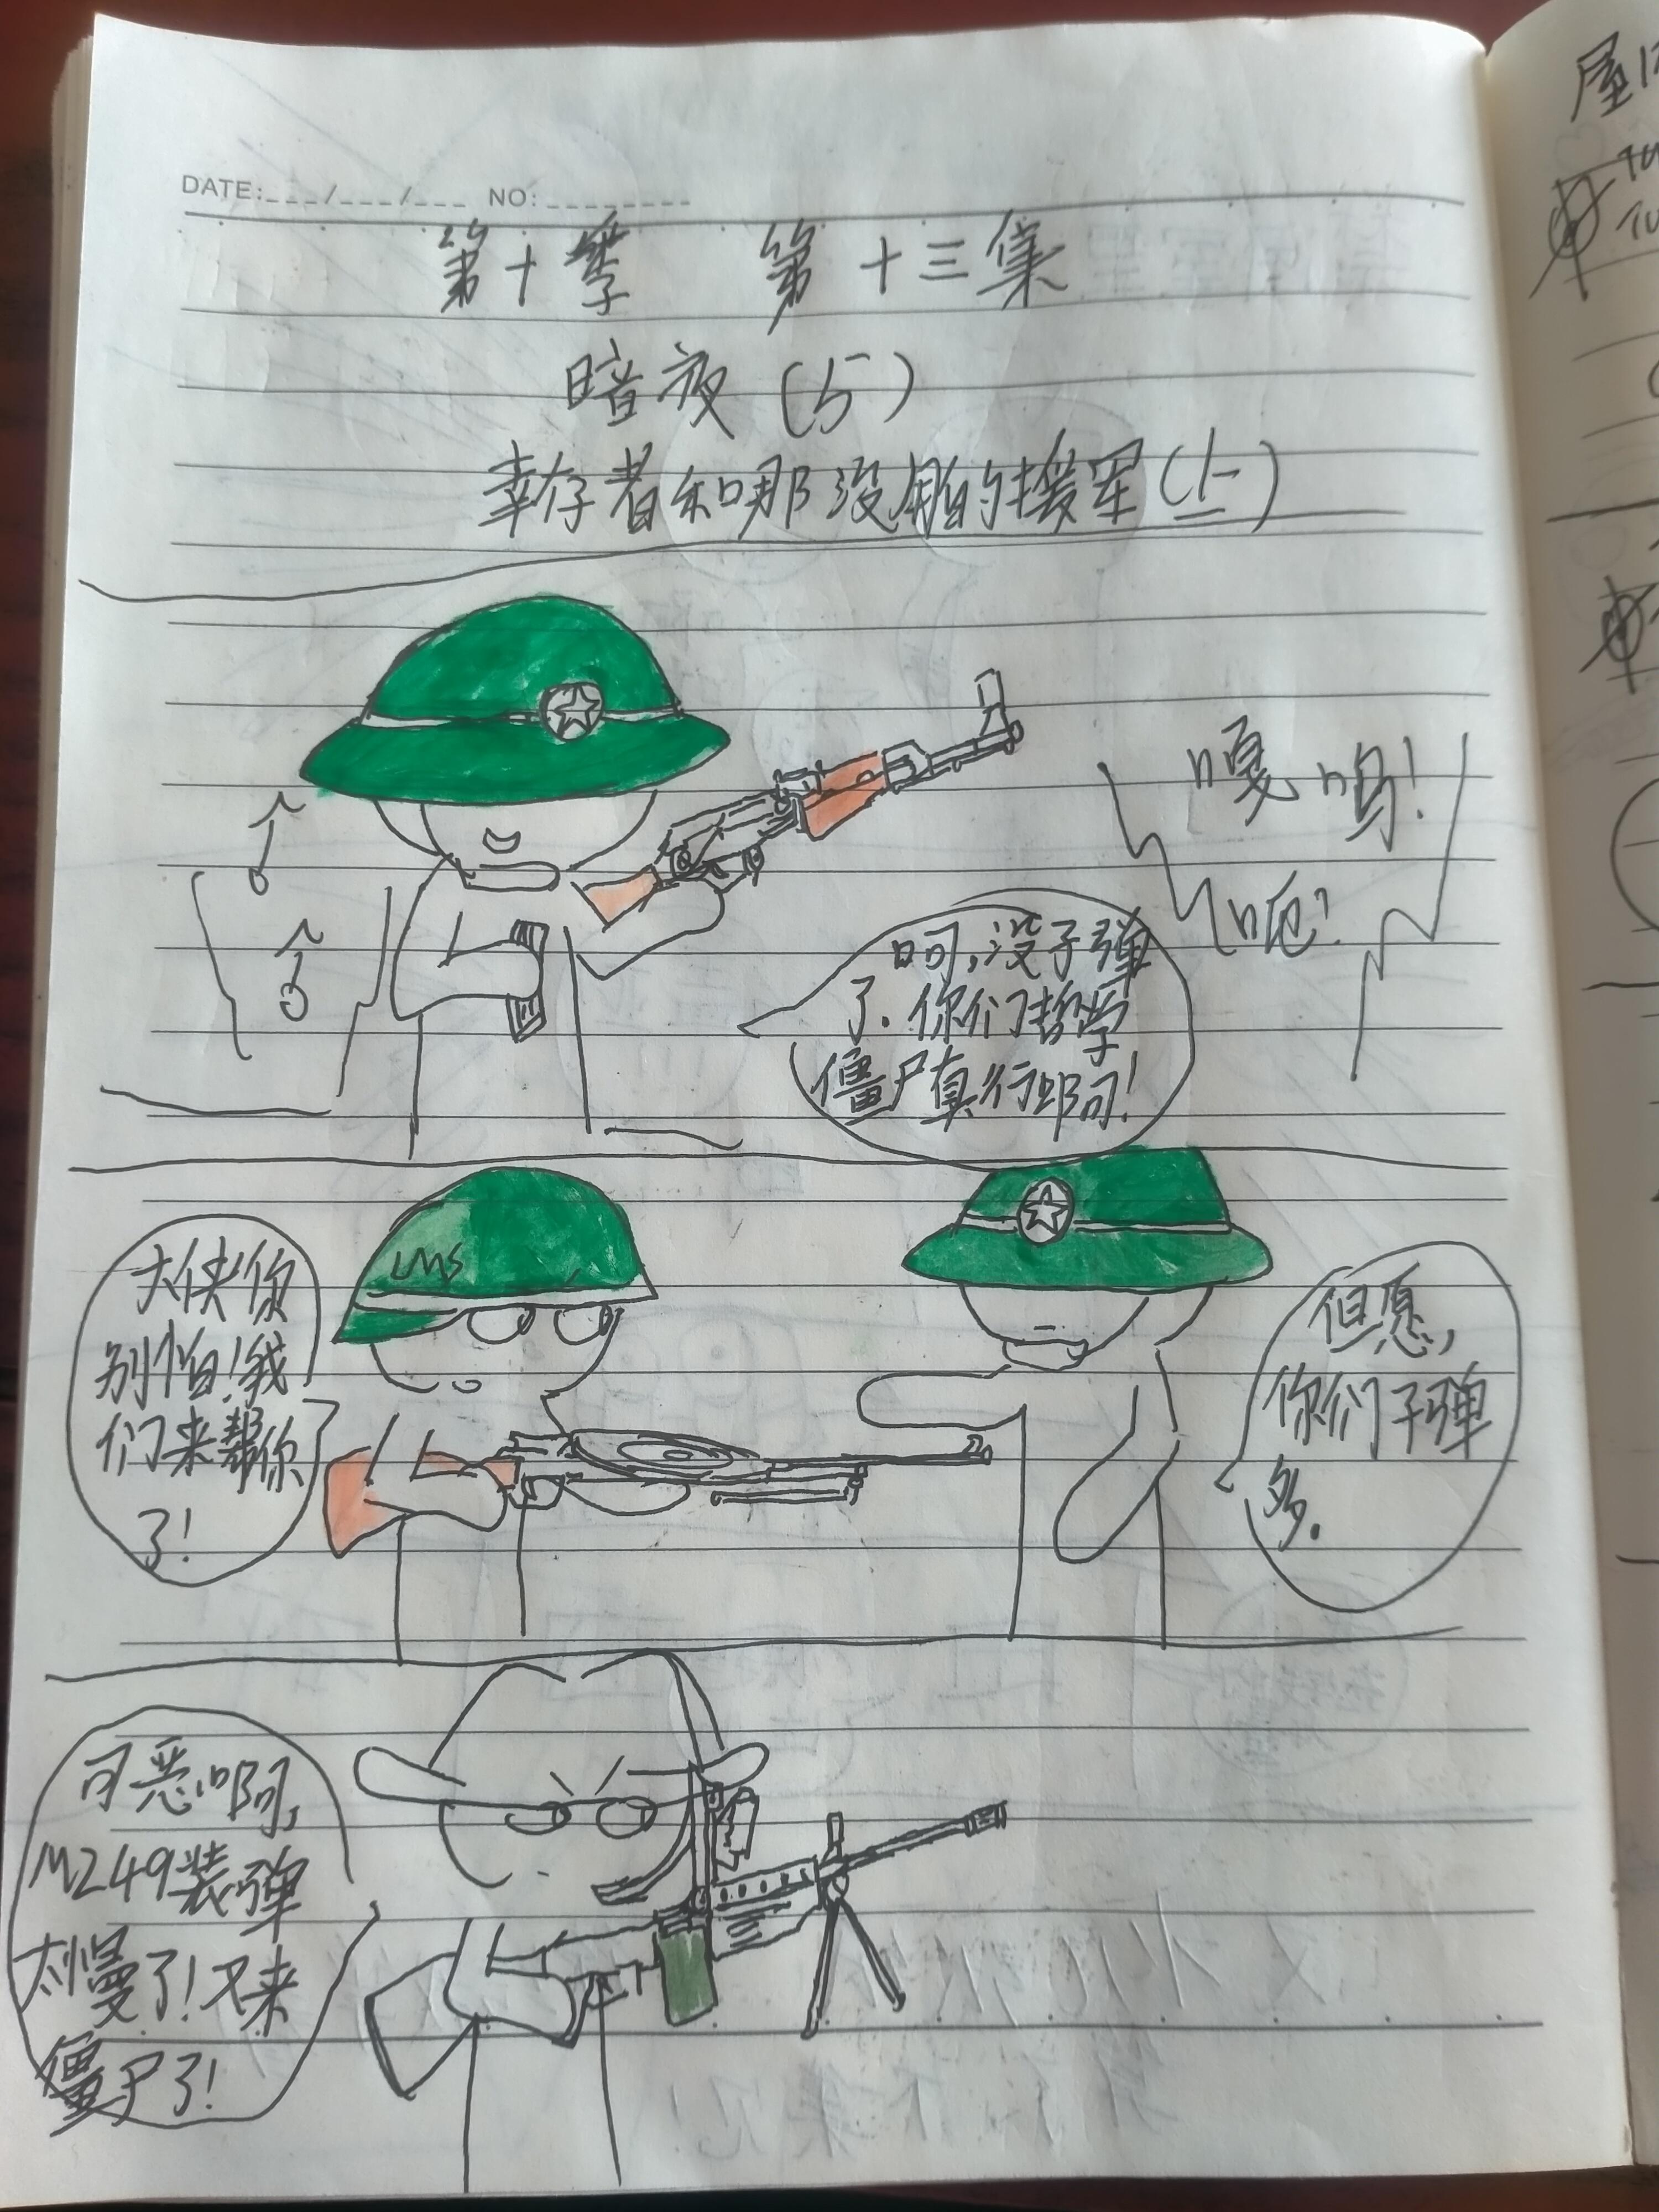 DATE:___/___/___ NO:________
第十季 第十三集
暗夜(5)
幸存者和那没用的援军(上)
嘎呜!
呃?
呵,没子弹
了.你们哲学
僵尸真行啊!
大侠你
别怕!我
们来帮你
了!
LMS
但愿,
你们子弹
多.
可恶啊,
M249装弹
太慢了!又来
僵尸了!
屋